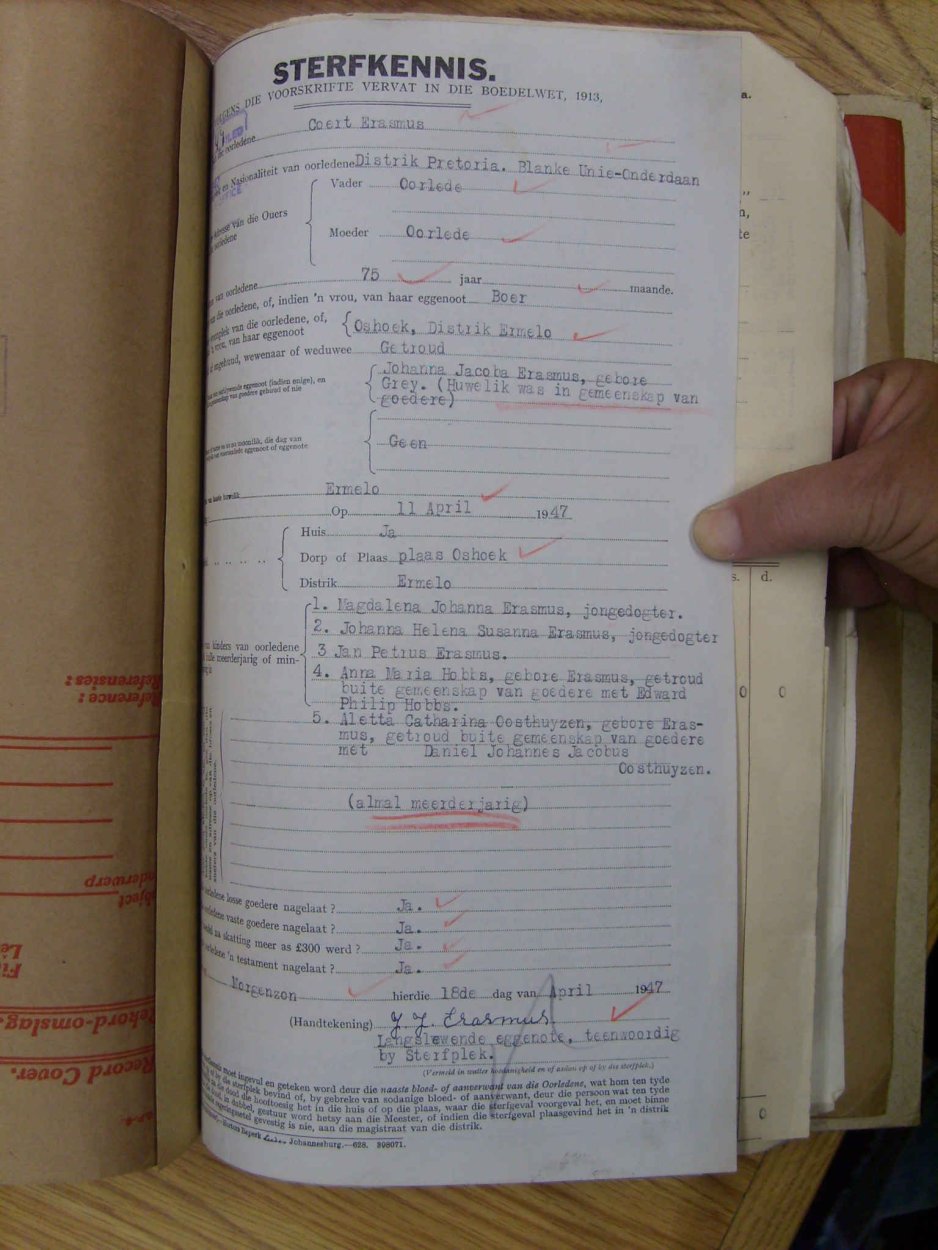 STERFKENNIS.
DIE VOORSKRIFTE VERVAT IN DIE BOEDELWET, 1913,
oorledene Coert Erasmus
en Nasionaliteit van oorledene Distrik Pretoria. Blanke Unie-Onderdaan
Vader Oorlede
van die Ouers
oorledene
Moeder Oorlede
van oorledene 75 jaar maande.
van die oorledene, of, indien 'n vrou, van haar eggenoot Boer
van die oorledene, of,
vrou, van haar eggenoot
Oshoek, Distrik Ermelo
ongehoud, wewenaar of weduwee Getroud
eggenoot (indien enige), en
van goedere gehoud of nie
Johanna Jacoba Erasmus, gebore
Grey. (Huwelik was in gemeenskap van
goedere)
die dag van
eggenoot of eggenote
Geen
Ermelo
Op 11 April 1947
Huis Ja
Dorp of Plaas plaas Oshoek
Distrik Ermelo
1. Magdalena Johanna Erasmus, jongedogter.
2. Johanna Helena Susanna Erasmus, jongedogter
van kinders van oorledene
meerderjarig of min-
3 Jan Petrus Erasmus.
4. Anna Maria Hobbs, gebore Erasmus, getroud
buite gemeenskap van goedere met Edward
Philip Hobbs.
5. Aletta Catharina Oosthuyzen, gebore Eras-
mus, getroud buite gemeenskap van goedere
met Daniel Johannes Jacobus
Oosthuyzen.
(almal meerderjarig)
oorledene losse goedere nagelaat? Ja.
oorledene vaste goedere nagelaat? Ja.
skatting meer as £300 werd? Ja.
oorledene 'n testament nagelaat? Ja.
Morgenzon hierdie 18de dag van April 1947
(Handtekening) J. J. Erasmus
Langslewende eggenote, teenwoordig
by Sterfplek.
(Vermeld in watter hoedanigheid en of aanwesig op of by die sterfplek.)
moet ingevul en geteken word deur die naaste bloed- of aanverwant van die Oorledene, wat hom ten tyde
die sterfplek bevind of, by gebreke van sodanige bloed- of aanverwant, deur die persoon wat ten tyde
die hooftoesig het in die huis of op die plaas, waar die sterfgeval voorgeval het, en moet binne
in dubbel, gestuur word hetsy aan die Meester, of indien die sterfgeval plaasgevind het in 'n distrik
gevestig is nie, aan die magistraat van die distrik.
Johannesburg.—628. 898071.
Reference:
Referensies:
Onderwerp
Subject
Rekord-omslag.
Record Cover.
a.
s. d.
0 0
0